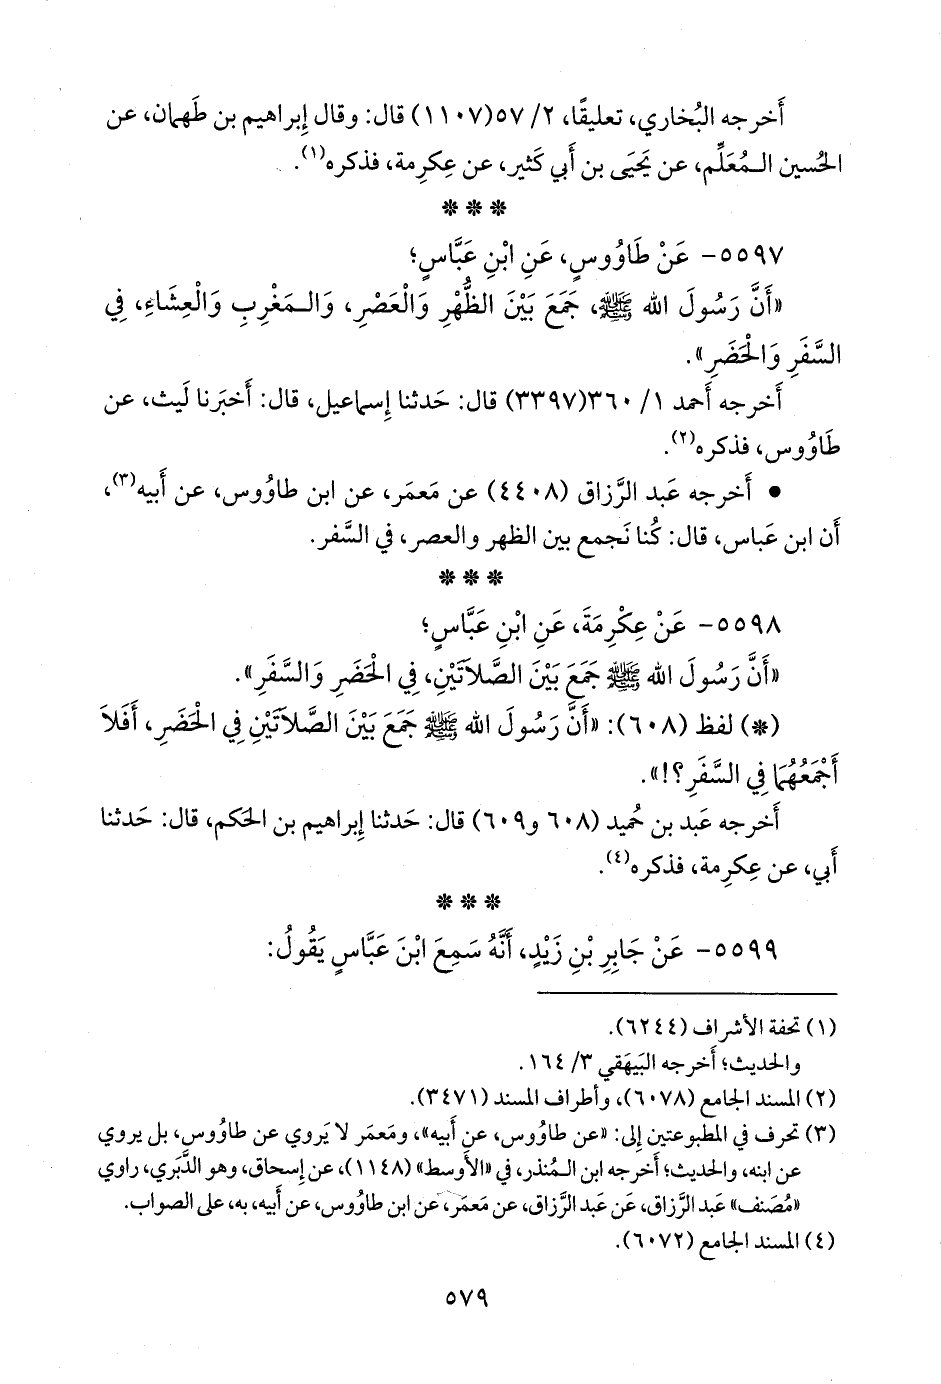 أَخرجه البُخاري، تعليقًا، ٢/ ٥٧(١١٠٧) قال: وقال إِبراهيم بن طَهمان، عن
الحُسين الـمُعَلِّم، عن يَحيَى بن أَبي كَثير، عن عِكرِمة، فذكره(١).
* * *
٥٥٩٧- عَنْ طَاوُوسٍ، عَنِ ابْنِ عَبَّاسٍ؛
«أَنَّ رَسُولَ الله ﷺ، جَمَعَ بَيْنَ الظُّهْرِ وَالْعَصْرِ، وَالـمَغْرِبِ وَالْعِشَاءِ، فِي
السَّفَرِ وَالْحَضَرِ».
أَخرجه أَحمد ١/ ٣٦٠(٣٣٩٧) قال: حَدثنا إِسماعيل، قال: أَخبَرنا لَيث، عن
طَاوُوس، فذكره(٢).
• أَخرجه عَبد الرَّزاق (٤٤٠٨) عن مَعمَر، عن ابن طاوُوس، عن أَبيه(٣)،
أَن ابن عَباس، قال: كُنا نَجمع بين الظهر والعصر، في السَّفر.
* * *
٥٥٩٨- عَنْ عِكْرِمَةَ، عَنِ ابْنِ عَبَّاسٍ؛
«أَنَّ رَسُولَ الله ﷺ جَمَعَ بَيْنَ الصَّلَاتَيْنِ، فِي الْحَضَرِ وَالسَّفَرِ».
(*) لفظ (٦٠٨): «أَنَّ رَسُولَ الله ﷺ جَمَعَ بَيْنَ الصَّلَاتَيْنِ فِي الْحَضَرِ، أَفَلَا
أَجْمَعُهُمَا فِي السَّفَرِ؟!».
أَخرجه عَبد بن حُميد (٦٠٨ و٦٠٩) قال: حَدثنا إِبراهيم بن الحَكم، قال: حَدثنا
أَبي، عن عِكرِمة، فذكره(٤).
* * *
٥٥٩٩- عَنْ جَابِرِ بْنِ زَيْدٍ، أَنَّهُ سَمِعَ ابْنَ عَبَّاسٍ يَقُولُ:
(١) تحفة الأشراف (٦٢٤٤).
والحديث؛ أَخرجه البَيهَقي ٣/ ١٦٤.
(٢) المسند الجامع (٦٠٧٨)، وأطراف المسند (٣٤٧١).
(٣) تحرف في المطبوعتين إلى: «عن طاوُوس، عن أَبيه»، ومَعمَر لا يَروي عن طاوُوس، بل يروي
عن ابنه، والحديث؛ أَخرجه ابن الـمُنذر، في «الأَوسط» (١١٤٨)، عن إِسحاق، وهو الدَّبَري، راوي
«مُصَنف» عَبد الرَّزاق، عَن عَبد الرَّزاق، عن مَعمَر، عن ابن طاوُوس، عن أَبيه، به، على الصواب.
(٤) المسند الجامع (٦٠٧٢).
٥٧٩